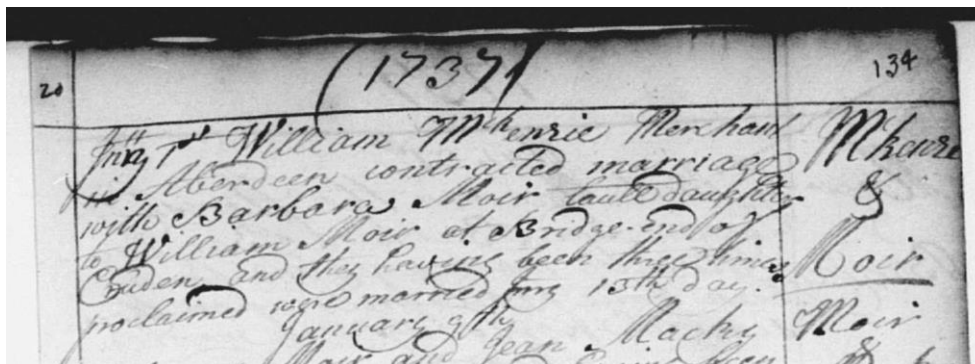 20 (1737) 134
Jnry 1st William Mckenzie Merchant Mckenzie
in Aberdeen contracted marriage &
with Barbara Moir daughter Moir
to William Moir at Bridge-end of
Cruden and they having been three times
proclaimed were married Jnry 13th day.
January 9th Moir
Moir and Jean Macky &